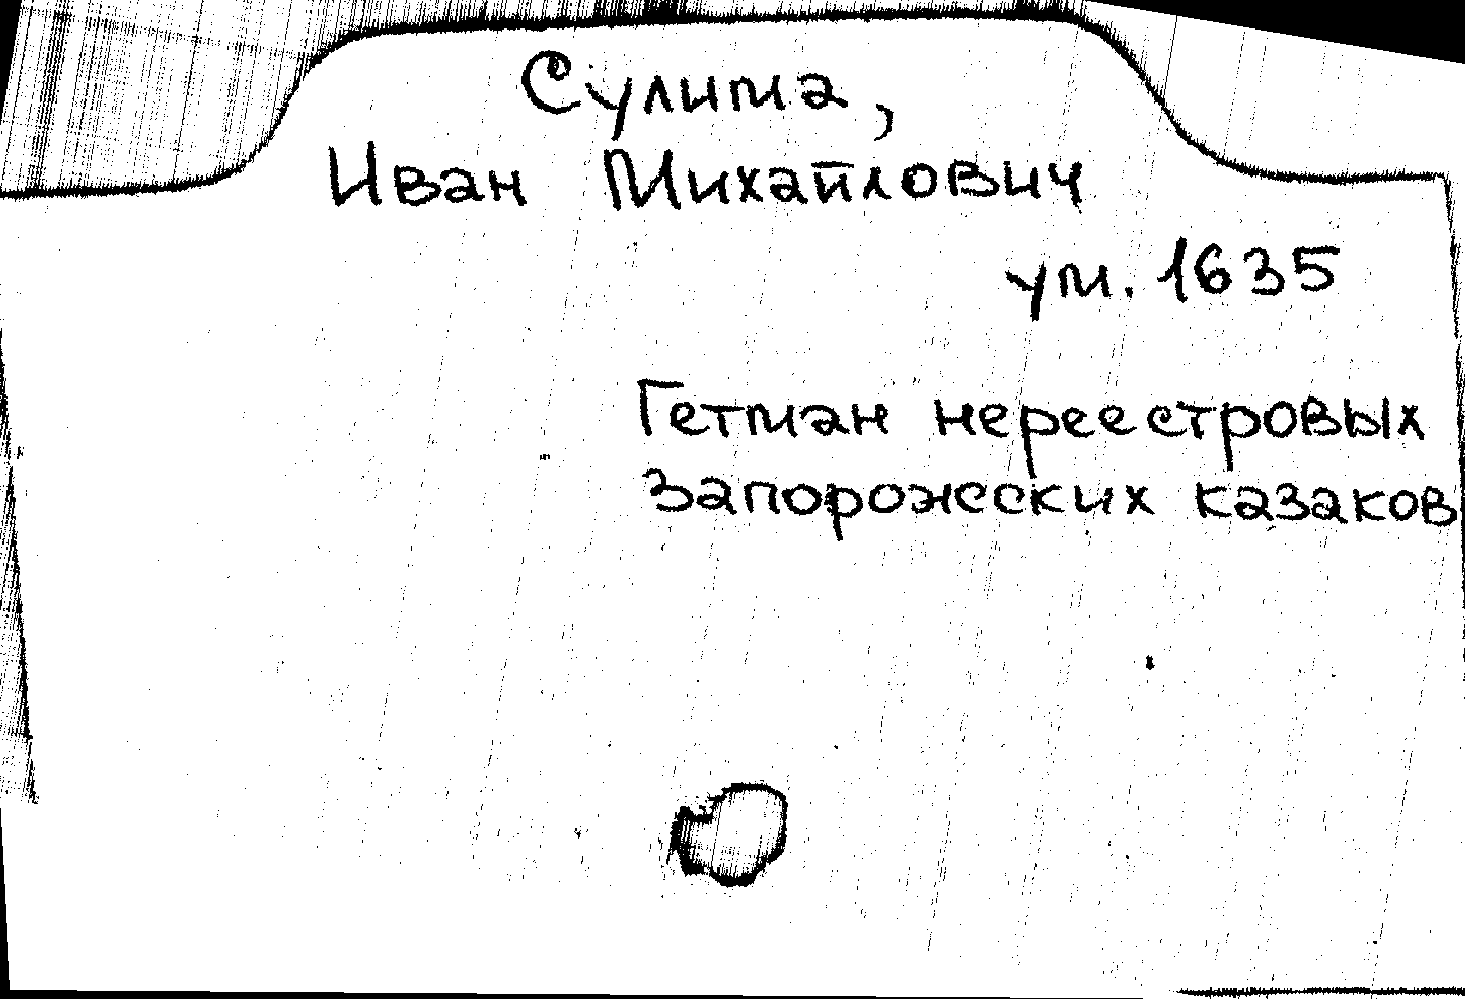 Сулима,
Иван Михайлович
ум. 1635
Гетман нереестровых
Запорожских казаков